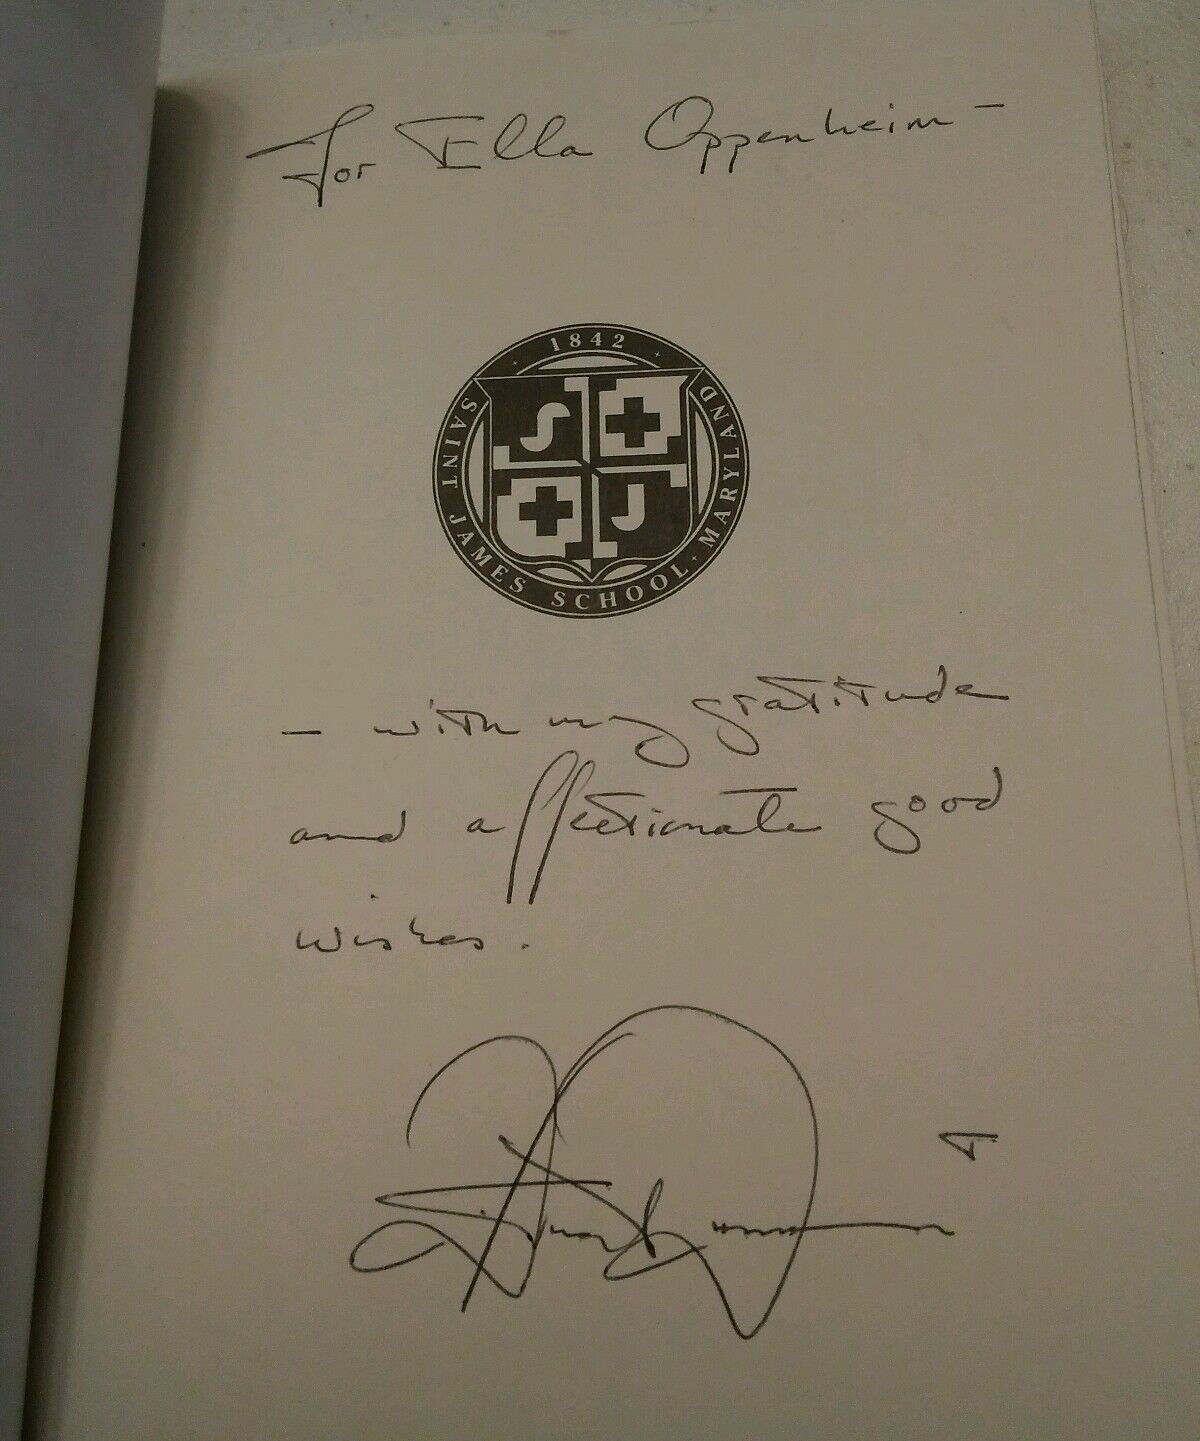 For Ella Oppenheim –
1842
SAINT JAMES SCHOOL · MARYLAND
S
J
– with my gratitude
and affectionate good
wishes.